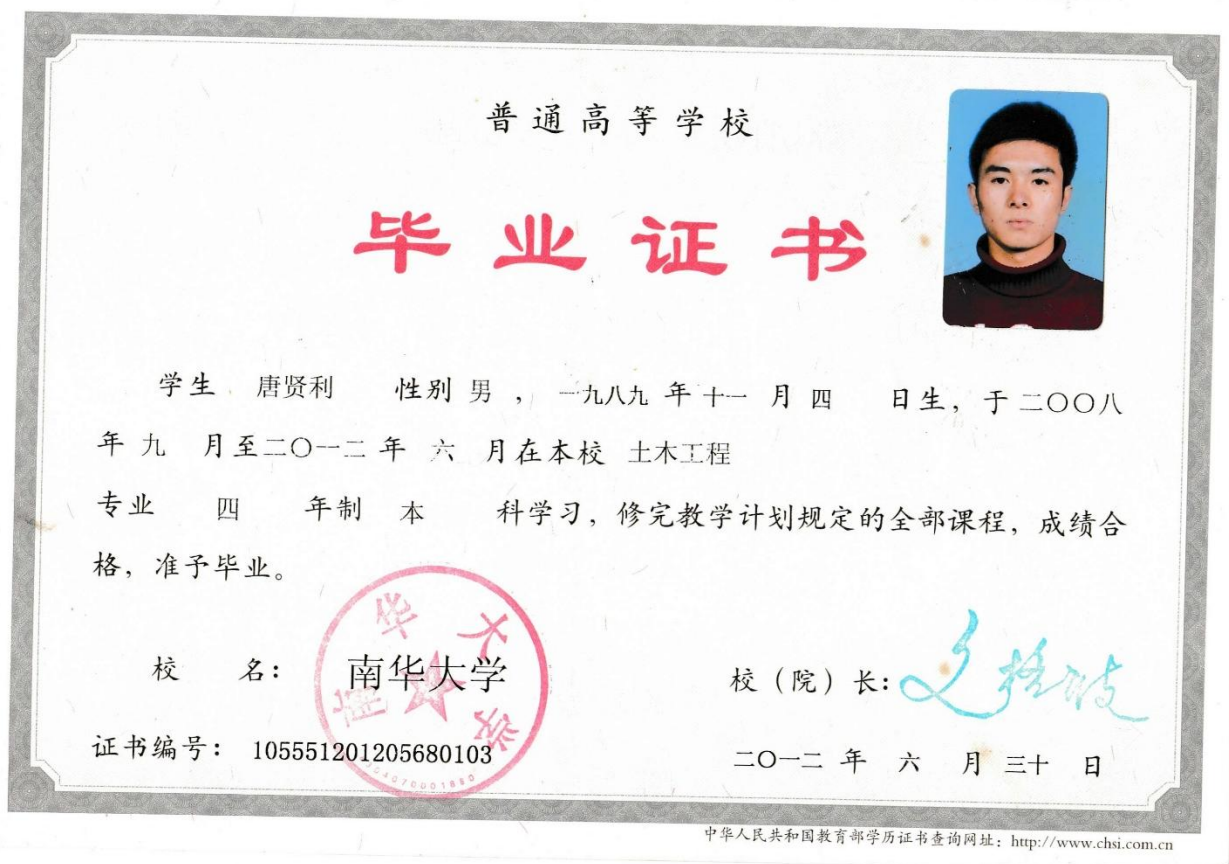 普通高等学校
毕业证书
学生 唐贤利 性别 男 ，一九八九 年 十一 月 四 日生，于 二〇〇八
年 九 月至二〇一二 年 六 月在本校 土木工程
专业 四 年制 本 科学习，修完教学计划规定的全部课程，成绩合
格，准予毕业。
南华大学
校 名： 南华大学
校（院）长：
证书编号： 105551201205680103
二〇一二 年 六 月 三十 日
中华人民共和国教育部学历证书查询网址：http://www.chsi.com.cn